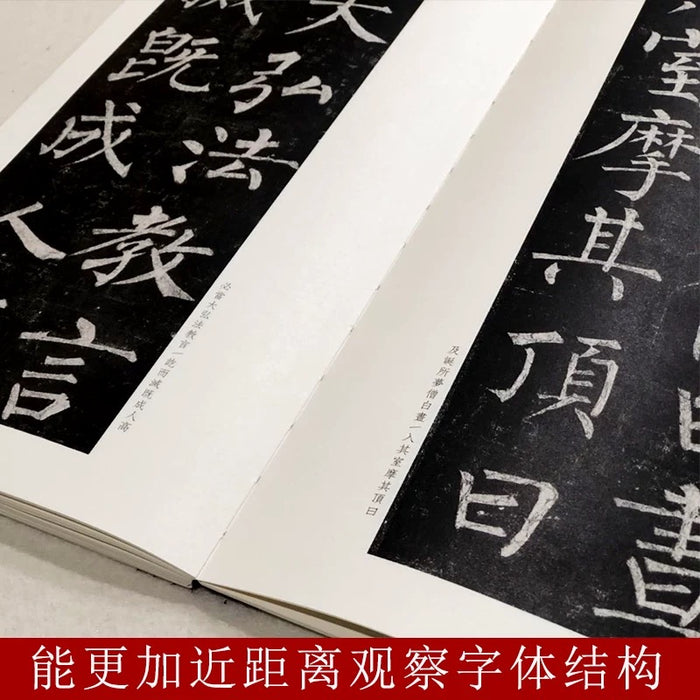 晝
室摩其頂曰
及誕所夢僧白晝一入其室摩其頂曰
大弘法教言
滅既成人
必當大弘法教言一訖而滅既成人高
能更加近距离观察字体结构